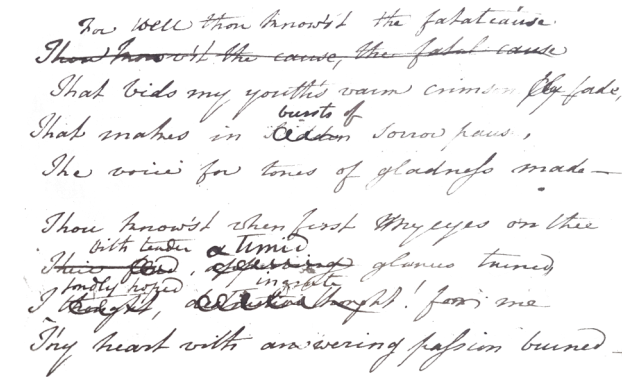 For well thou know'st the fatal cause
Thou know'st the cause, the fatal cause
That bids my youth's warm crimson fade,
bursts of
That makes in sorrow pause,
The voice for tones of gladness made—
Thou know'st when first my eyes on thee
with tender a timid
Their glances turned
fondly hoped ingrate
I thought, thought! for me
Thy heart with answering passion burned—